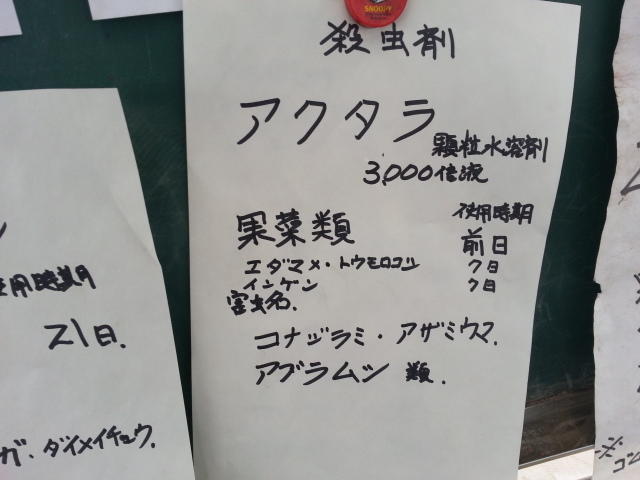 SNOOPY
殺虫剤
アクタラ
顆粒水溶剤
3,000倍液
果菜類
使用時期
前日
エダマメ・トウモロコシ 7日
インゲン 7日
害虫名.
コナジラミ・アザミウマ.
アブラムシ 類.
用時期
21日.
ガ・ダイメイチュウ.